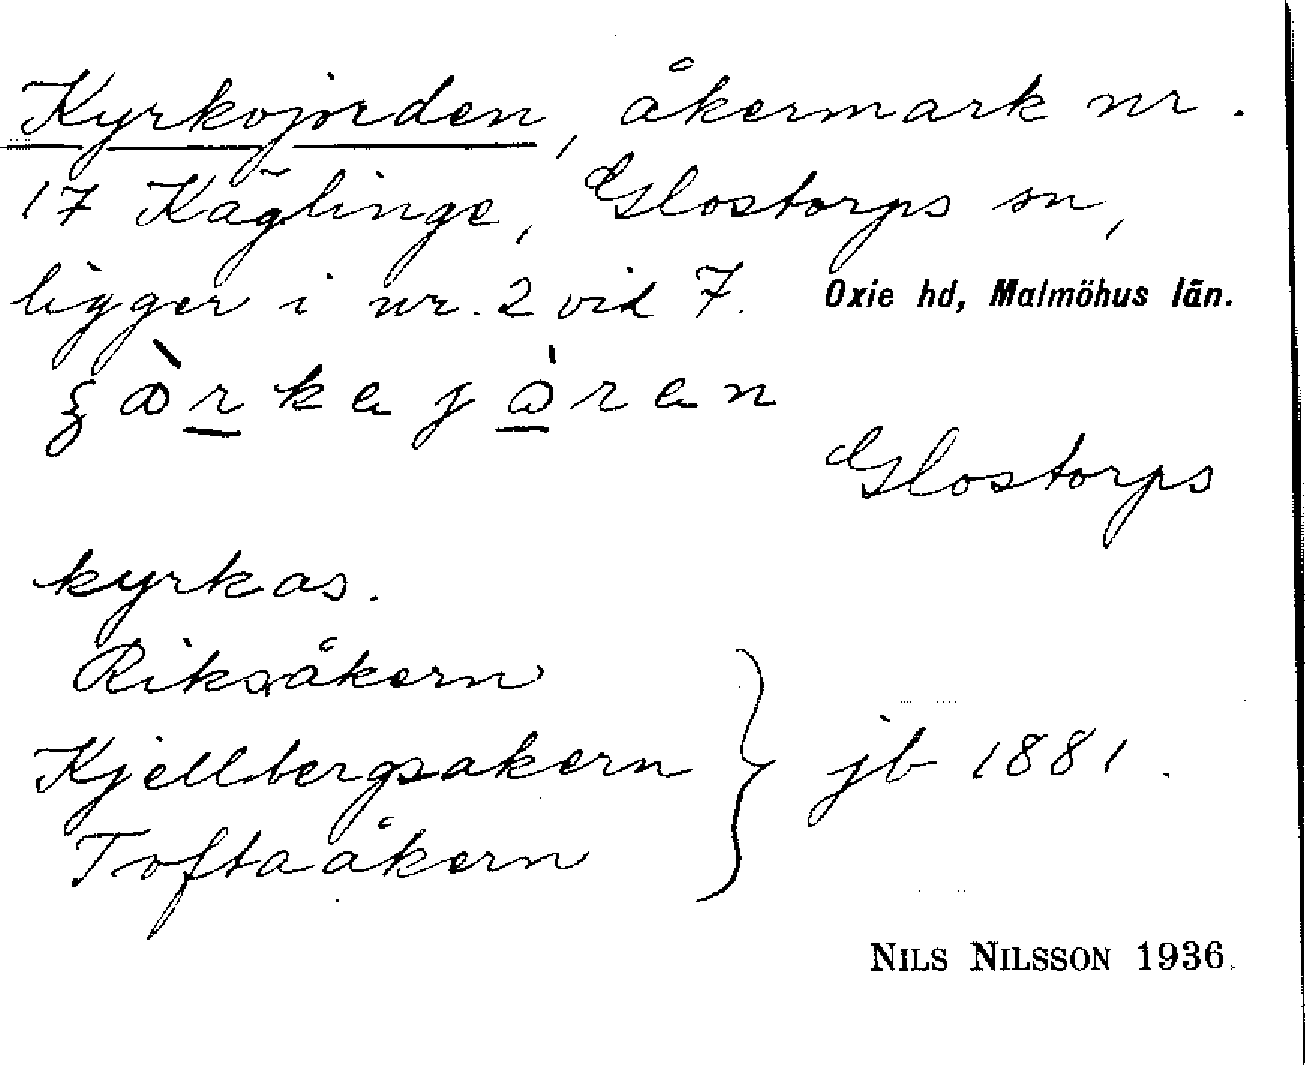 Kyrkojorden, åkermark nr.
17 Käglinge, Glostorps sn,
ligger i nr. 2 vid 7. Oxie hd, Malmöhus län.
Glostorps
kyrkas.
Riksåkern
Kjellbergsakern
Toftaåkern
jb 1881.
NILS NILSSON 1936.